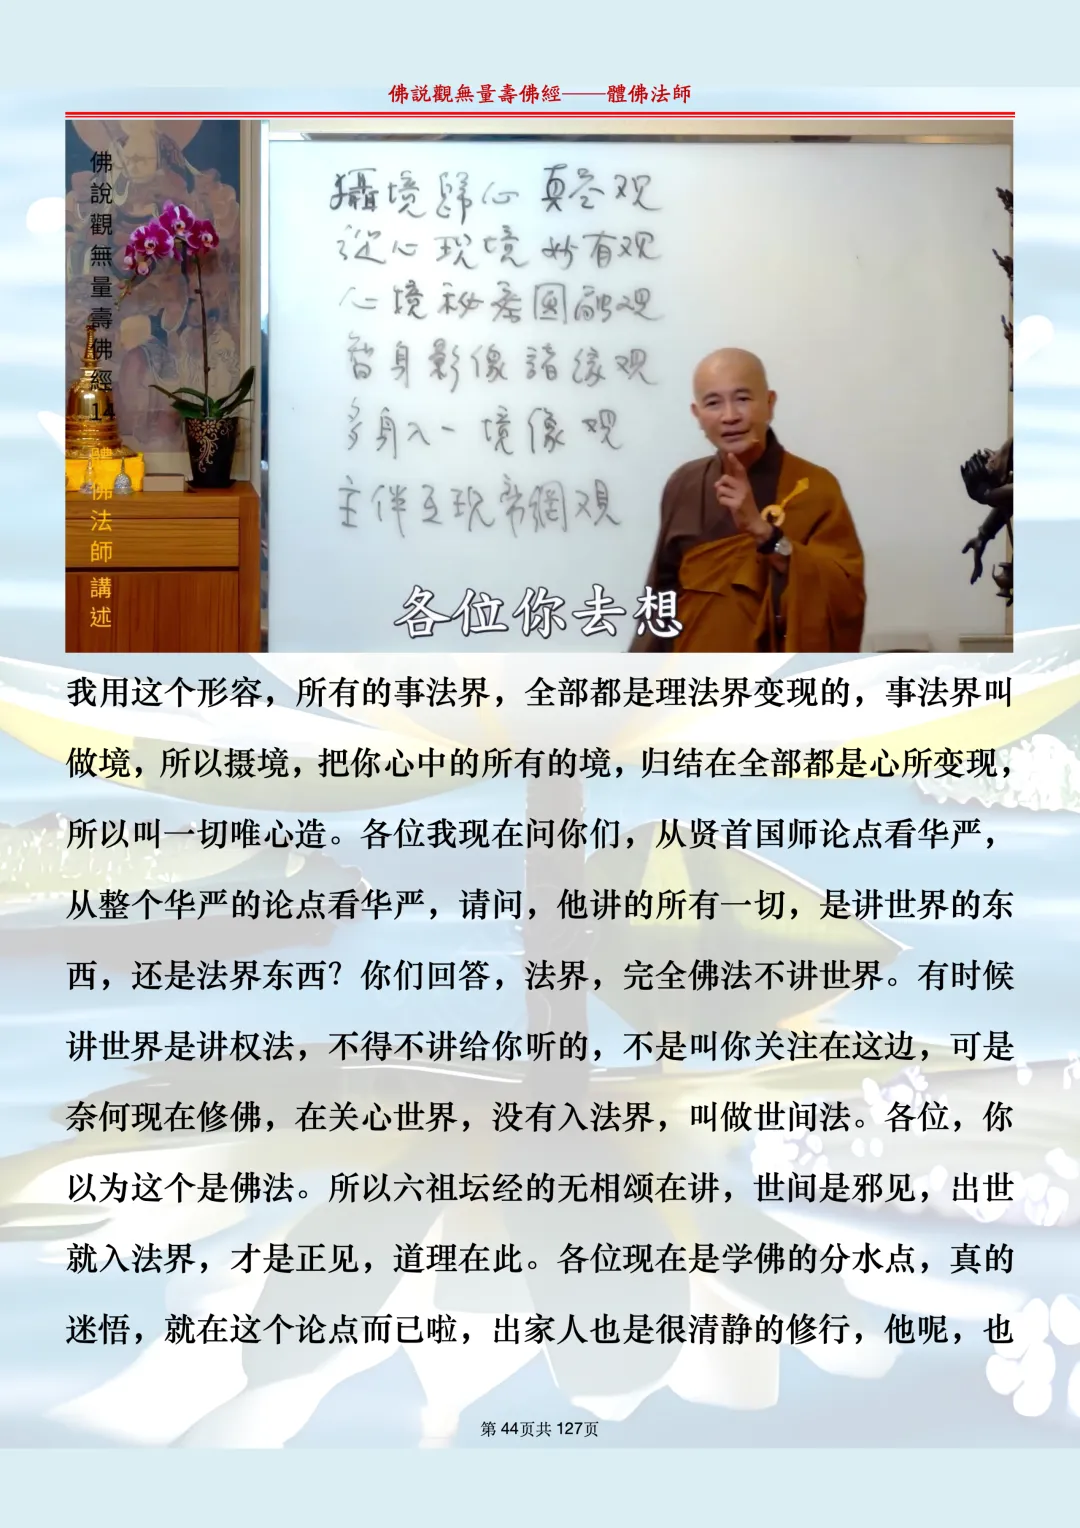 佛説觀無量壽佛經——體佛法師
佛說觀無量壽佛經14 體佛法師 講述
攝境歸心真空观
從心现境妙有观
心境秘密圓融观
智身影像諸缘观
多身入一境像观
主伴互现帝網观
各位你去想
我用这个形容，所有的事法界，全部都是理法界变现的，事法界叫
做境，所以摄境，把你心中的所有的境，归结在全部都是心所变现，
所以叫一切唯心造。各位我现在问你们，从贤首国师论点看华严，
从整个华严的论点看华严，请问，他讲的所有一切，是讲世界的东
西，还是法界东西？你们回答，法界，完全佛法不讲世界。有时候
讲世界是讲权法，不得不讲给你听的，不是叫你关注在这边，可是
奈何现在修佛，在关心世界，没有入法界，叫做世间法。各位，你
以为这个是佛法。所以六祖坛经的无相颂在讲，世间是邪见，出世
就入法界，才是正见，道理在此。各位现在是学佛的分水点，真的
迷悟，就在这个论点而已啦，出家人也是很清静的修行，他呢，也
第 44页共 127页